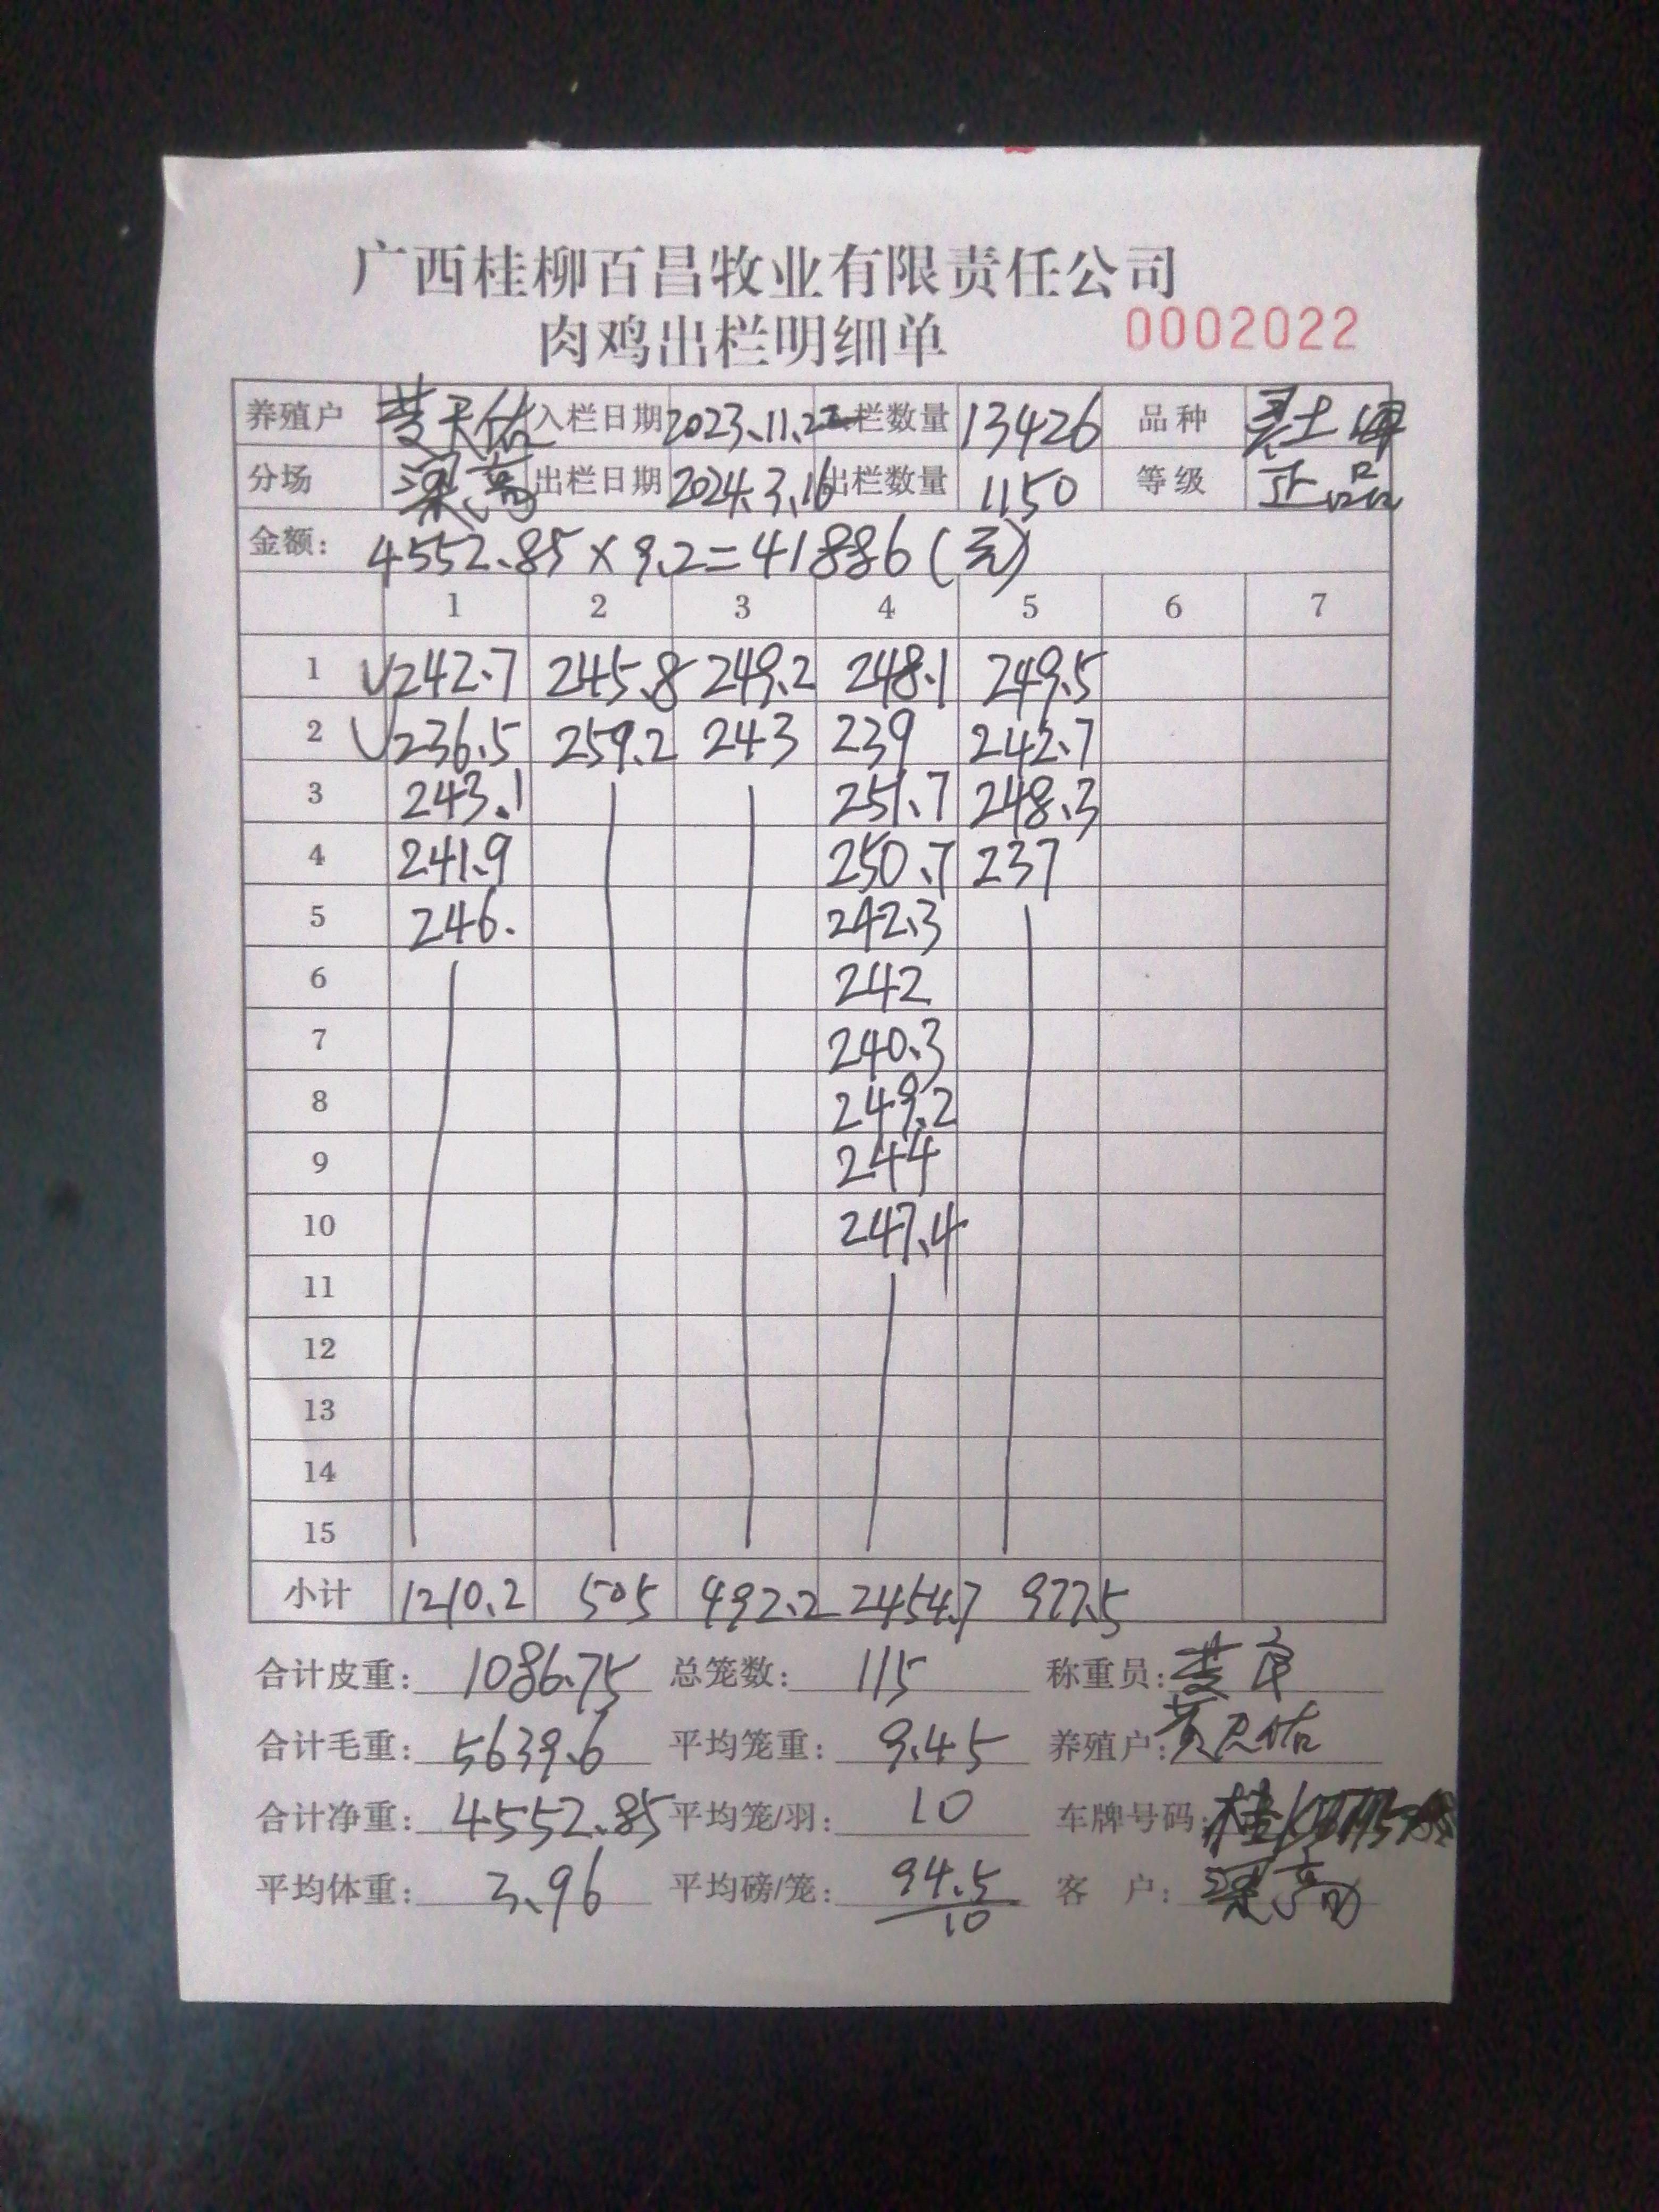 广西桂柳百昌牧业有限责任公司
肉鸡出栏明细单 0002022
养殖户 黄天佑 入栏日期 2023.11.22 栏数量 13426 品种 土
分场 梁高 出栏日期 2024.3.16 出栏数量 1150 等级 正品
金额: 4552.85×9.2=41886(元)
1 2 3 4 5 6 7
1 √242.7 245.8 249.2 248.1 249.5
2 √236.5 259.2 243 239 242.7
3 243.1 251.7 248.3
4 241.9 250.7 237
5 246. 242.3
6 242
7 240.3
8 249.2
9 244
10 247.4
11
12
13
14
15
小计 1210.2 505 492.2 2454.7 977.5
合计皮重: 1086.75 总笼数: 115 称重员: 黄
合计毛重: 5639.6 平均笼重: 9.45 养殖户: 黄天佑
合计净重: 4552.85 平均笼/羽: 10 车牌号码: 桂
平均体重: 3.96 平均磅/笼: 94.5/10 客 户: 梁高